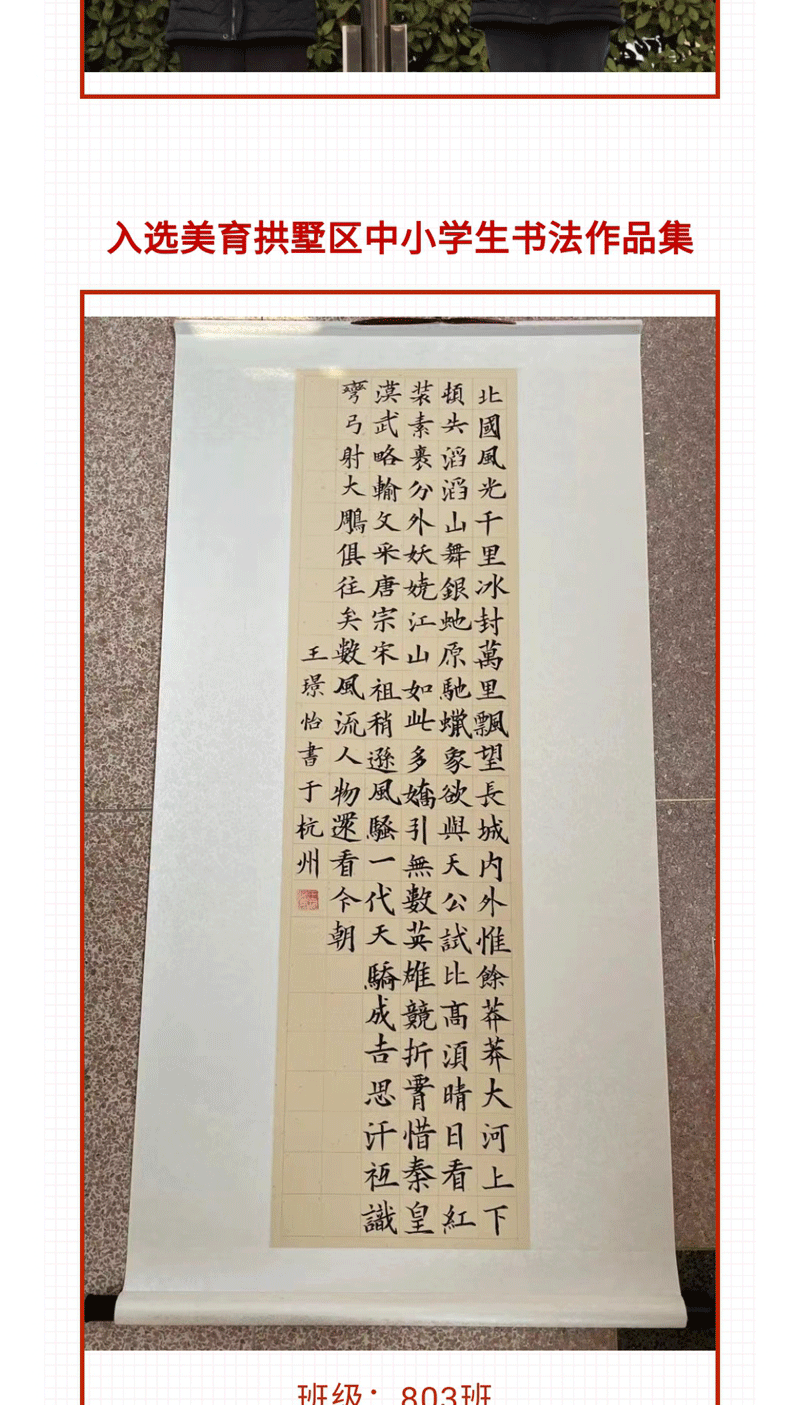 入选美育拱墅区中小学生书法作品集
北國風光千里冰封萬里飄望長城内外惟餘莽莽大河上下
頓失滔滔山舞銀虵原馳蠟象欲與天公試比高須晴日看紅
装素裹分外妖娆江山如此多嬌引無數英雄競折惜秦皇
漢武略輸文采唐宗宋祖稍遜風騷一代天驕成吉思汗祗識
彎弓射大鵰俱往矣數風流人物還看今朝
王璟怡書于杭州
班级：803班